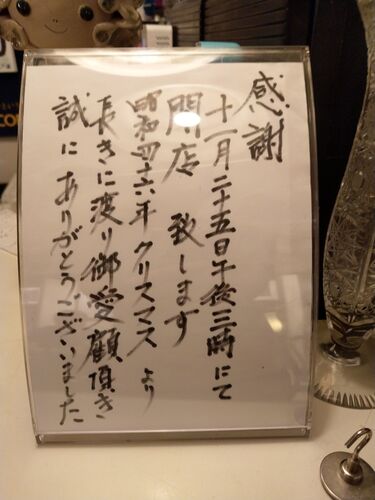 感謝
十一月二十五日午後三時にて
閉店 致します
昭和四十六年クリスマスより
長きに渡り御愛顧頂き
誠にありがとうございました